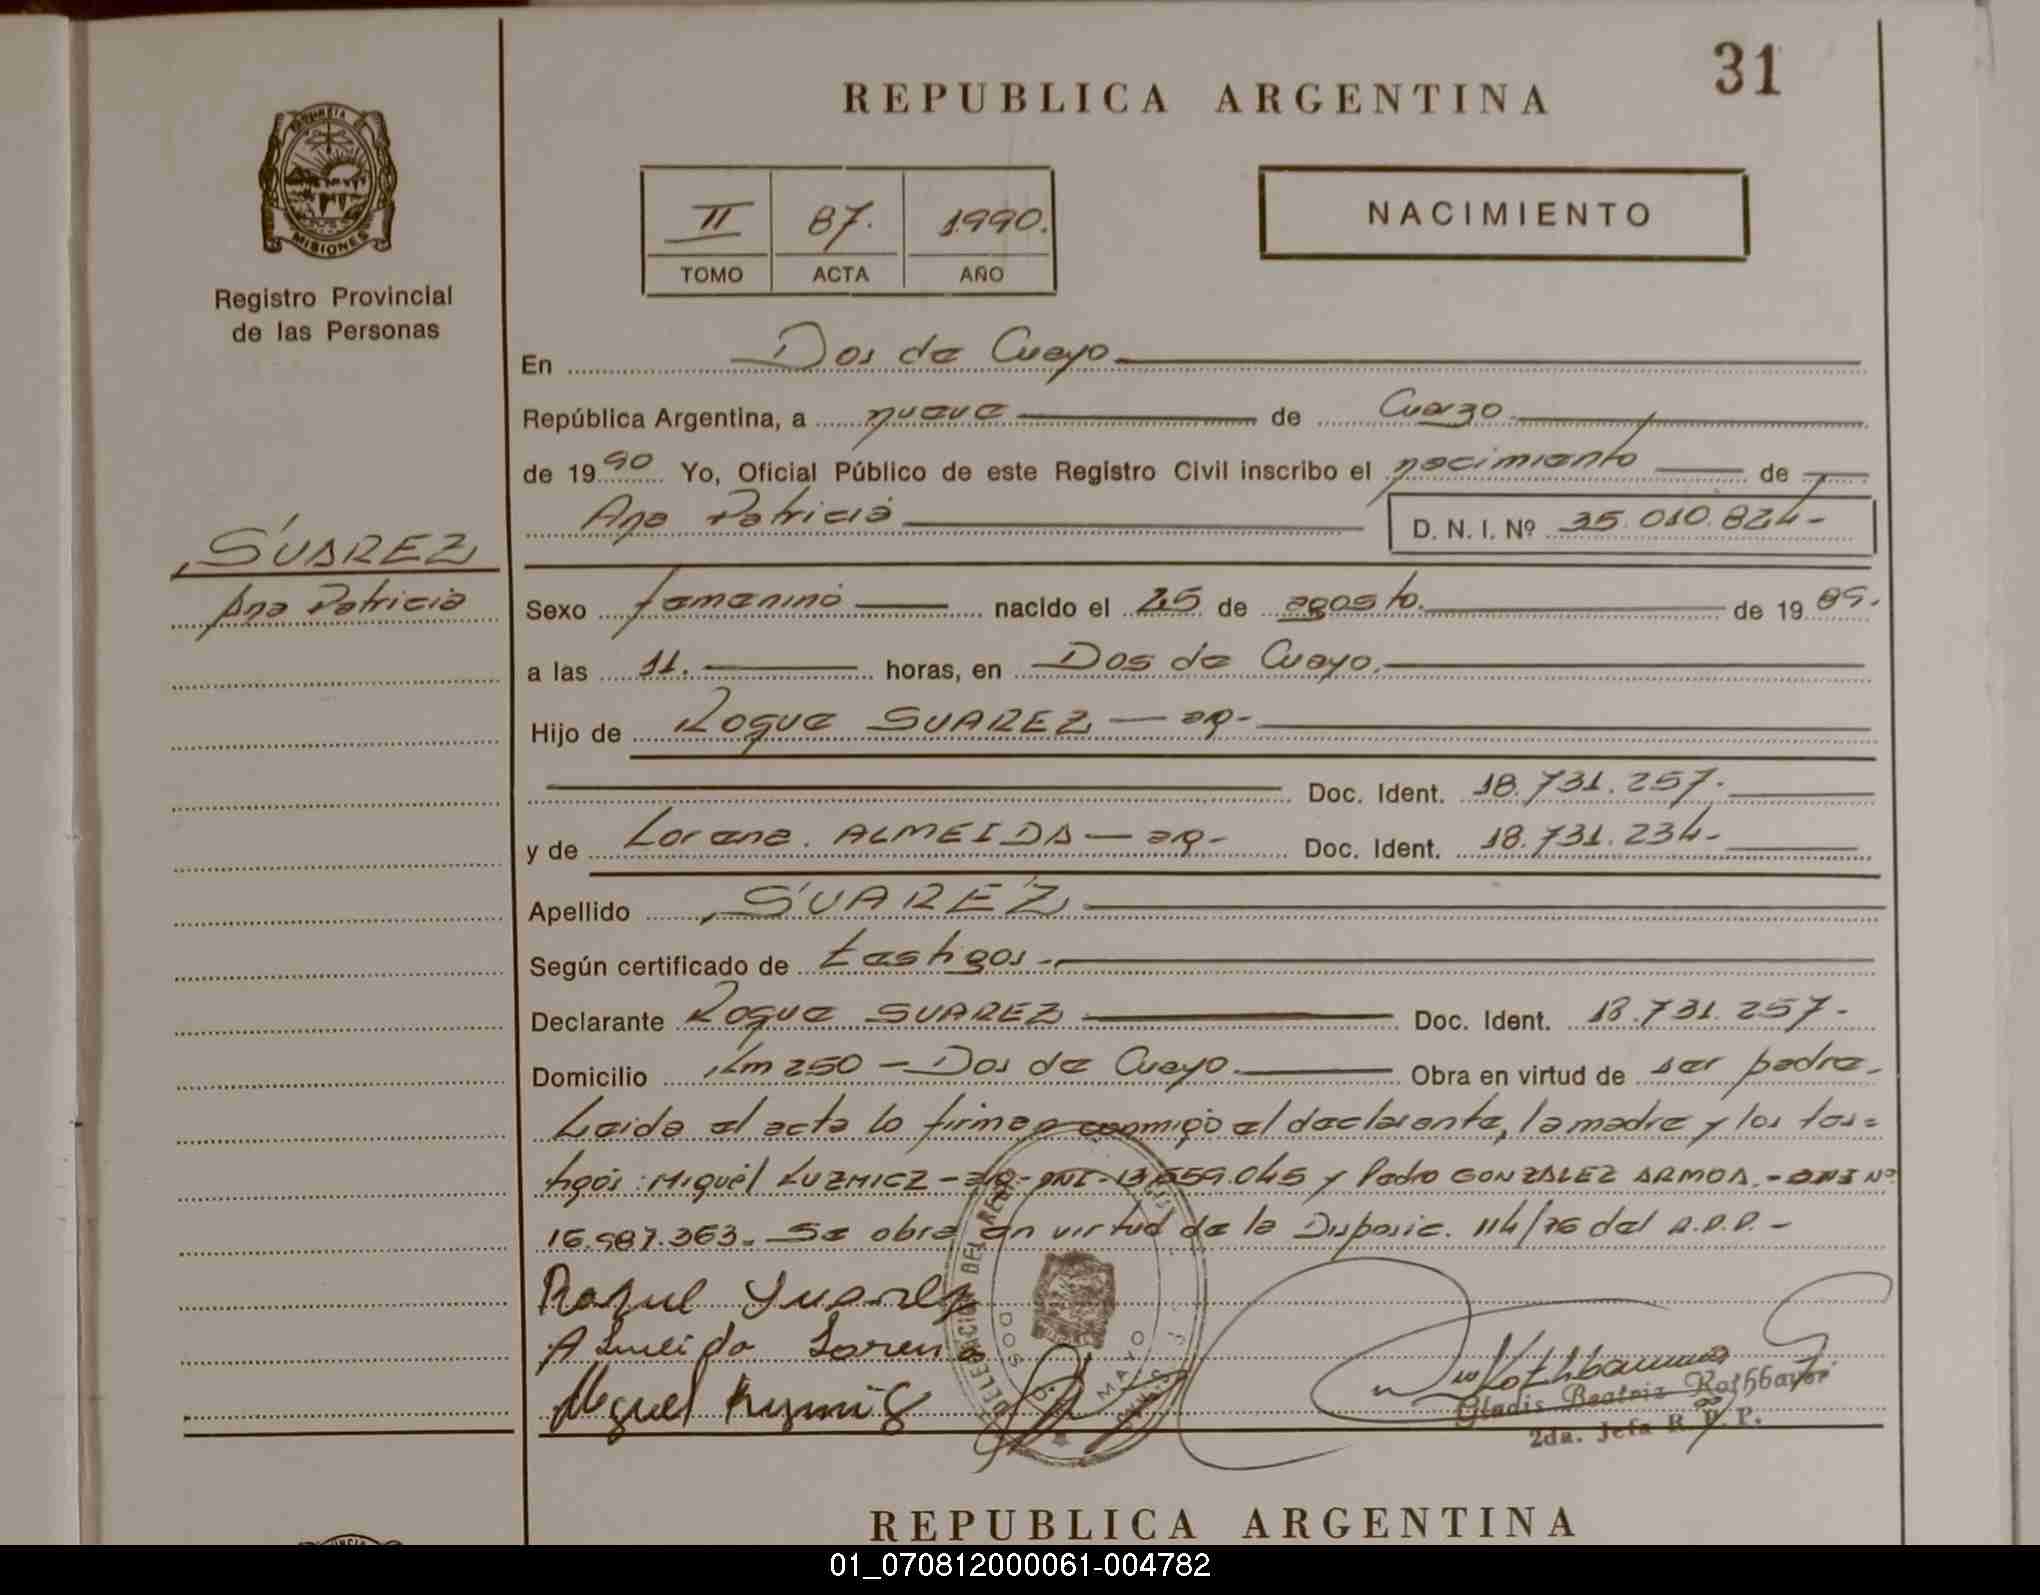 31
REPUBLICA ARGENTINA
PROVINCIA DE
MISIONES
Registro Provincial
de las Personas
II 87. 1990.
TOMO ACTA AÑO
NACIMIENTO
En Dos de Mayo
República Argentina, a nueve de Marzo
de 1990 Yo, Oficial Público de este Registro Civil inscribo el nacimiento de
Ana Patricia D. N. I. Nº 35.010.824-
SUAREZ
Ana Patricia
Sexo femenino nacido el 25 de agosto. de 1989.
a las 11. horas, en Dos de Mayo.
Hijo de Roque SUAREZ — ar-
Doc. Ident. 18.731.257.
y de Lorena. ALMEIDA — ar- Doc. Ident. 18.731.234-
Apellido SUAREZ
Según certificado de testigos.
Declarante Roque SUAREZ Doc. Ident. 18.731.257-
Domicilio Km 250 - Dos de Mayo. Obra en virtud de ser padre.
Leida el acta lo firman conmigo el declarante, la madre y los tes=
tigos: Miguel KUZMICZ - ar - DNI - 13.559.045 y Pedro GONZALEZ ARMOA. - DNI Nº
16.987.363. Se obra en virtud de la Disposic. 114/76 del R.P.P. -
Roque Suarez
Almeida Lorena
Miguel Kuzmicz
DELEGACION DEL
DOS DE MAYO
Gladis Beatriz Rothbauer
2da. Jefa R. P. P.
REPUBLICA ARGENTINA
01_070812000061-004782